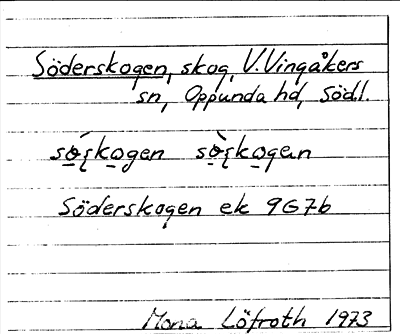 Söderskogen, skog, V. Vingåkers
sn, Oppunda hd, Södl.
Söderskogen ek 9G7b
Mona Löfroth 1973